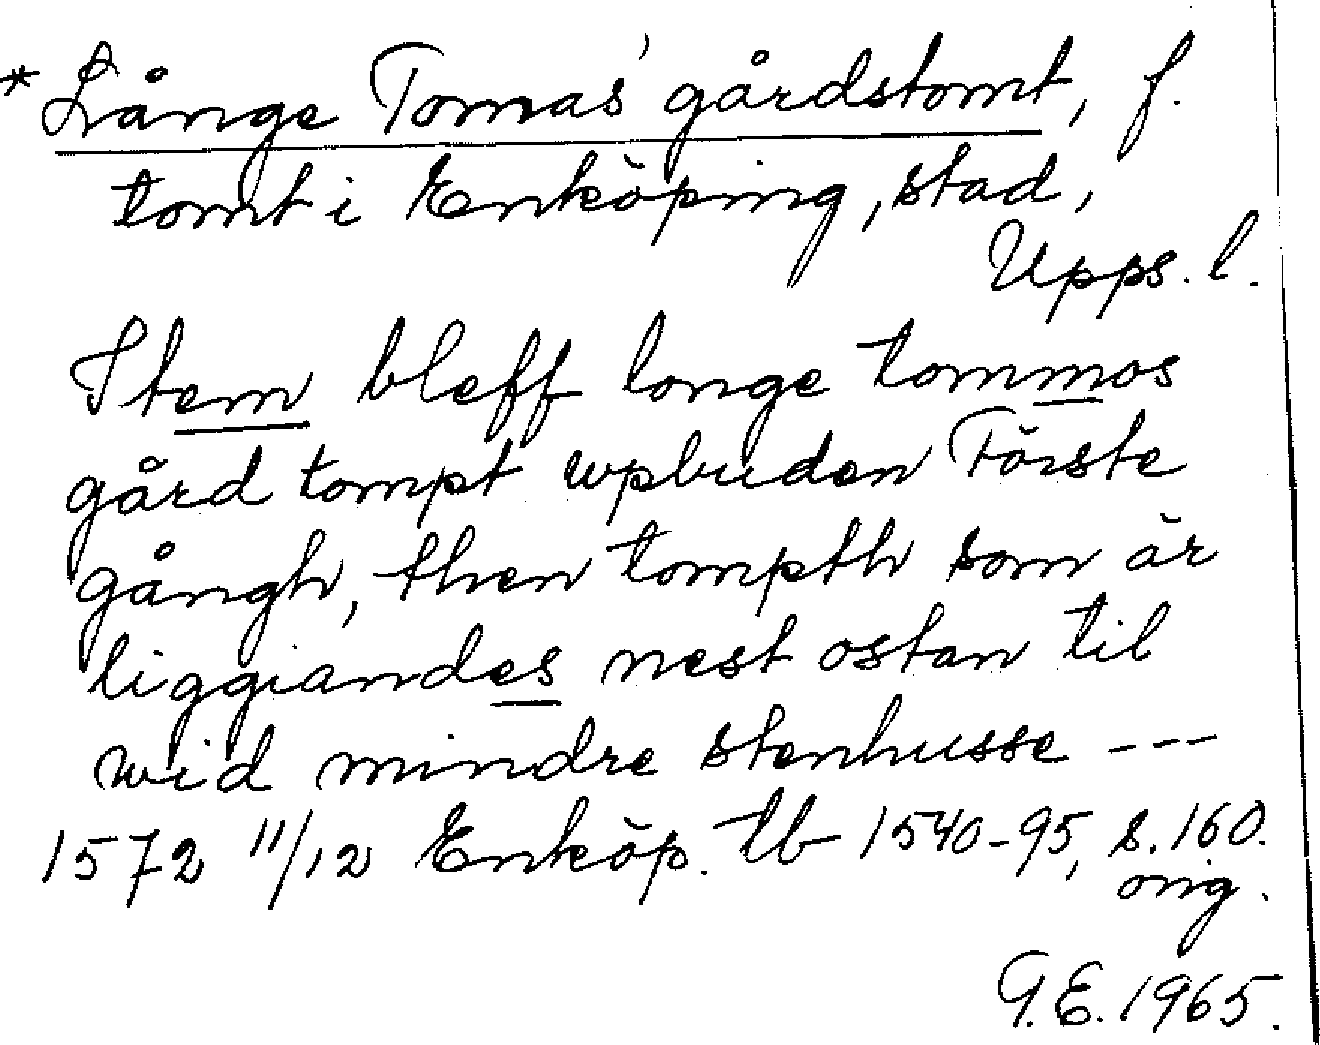 * Långe Tomas' gårdstomt, f.
tomt i Enköping, stad,
Upps. l.
Item bleff longe tommos
gård tompt wpbuden Förste
gångh, then tompth som är
liggiandes nest ostan til
wid mindre stenhusse ---
1572 11/12 Enköp. tb 1540-95, s. 160.
orig.
G.E. 1965.